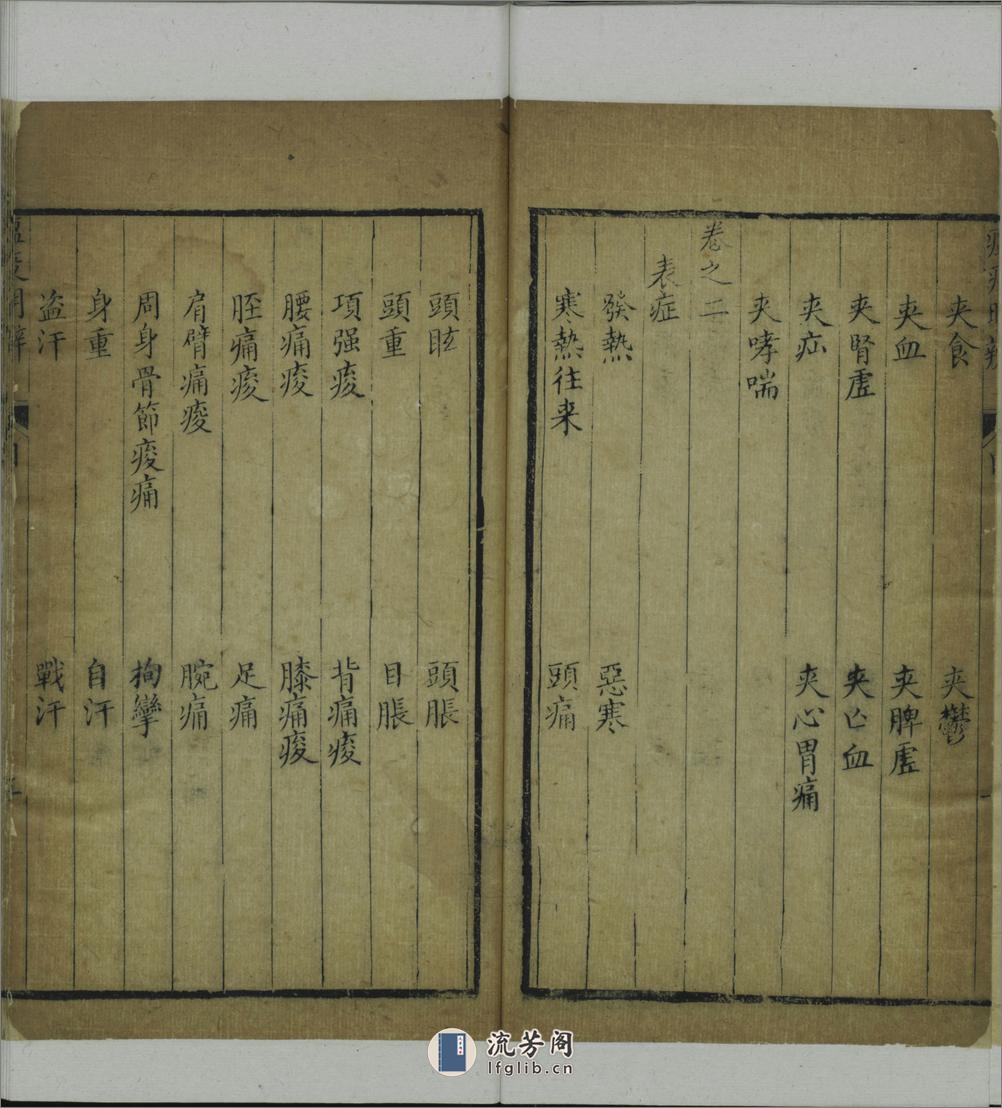 夾食　夾鬱
夾血　夾脾虛
夾腎虛　夾亡血
夾疝　夾心胃痛
夾哮喘
卷之二
表症
發熱　惡寒
寒熱往来　頭痛
頭眩　頭脹
頭重　目脹
項强痠　背痛痠
腰痛痠　膝痛痠
脛痛痠　足痛
肩臂痛痠　腕痛
周身骨節痠痛　拘攣
身重　自汗
盗汗　戰汗
流芳阁
lfglib.cn